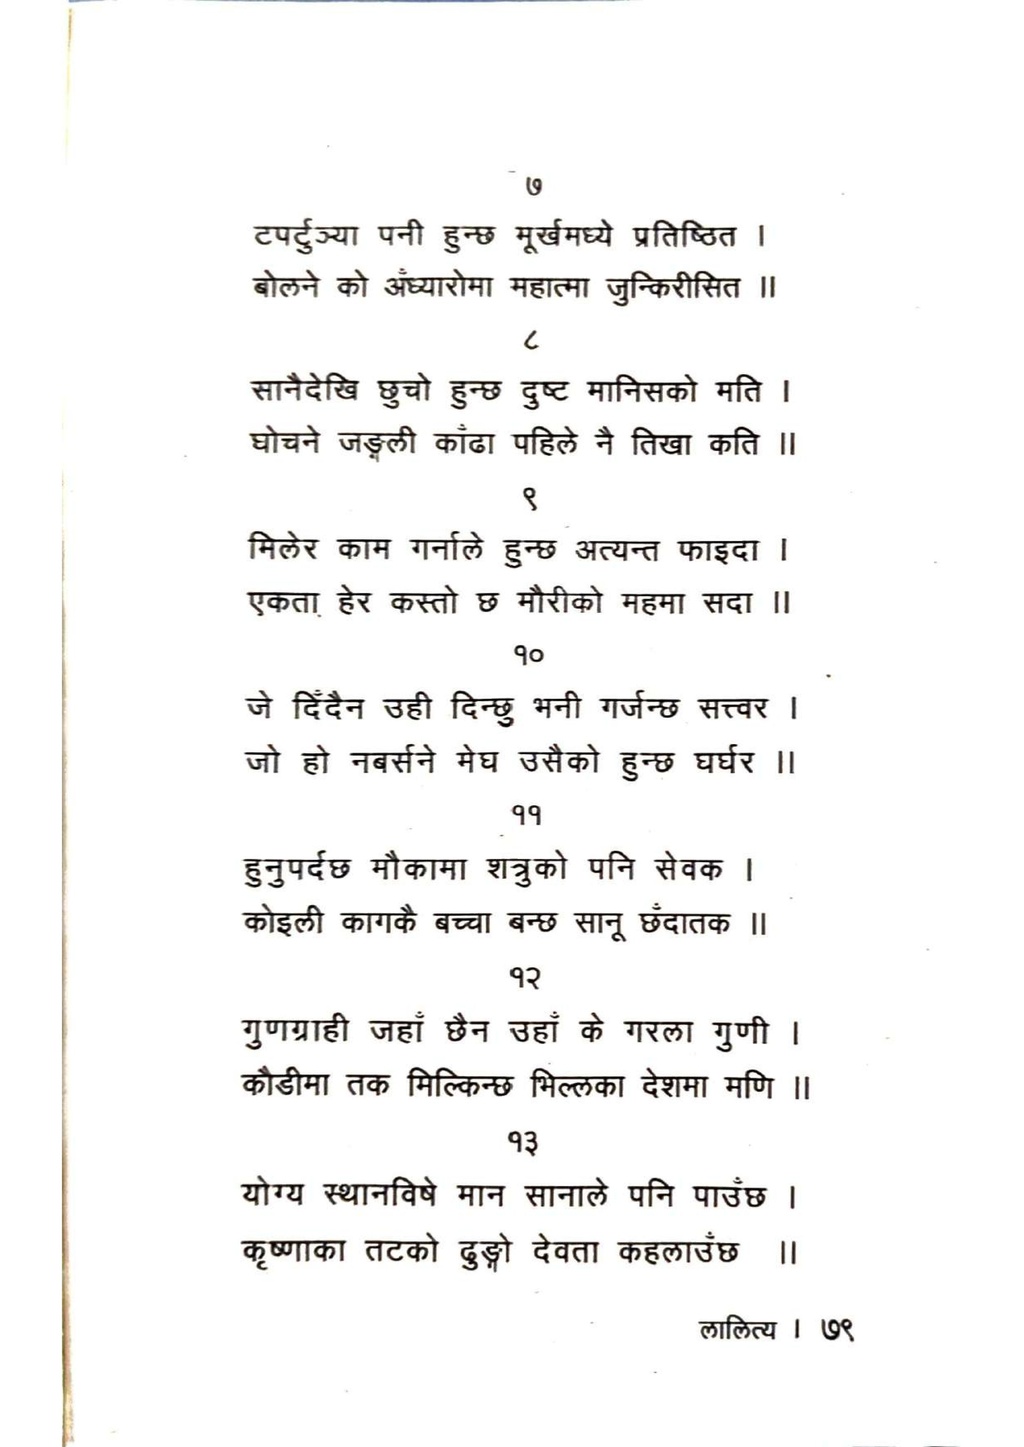 ७
टपर्टुञ्या पनी हुन्छ मूर्खमध्ये प्रतिष्ठित ।
बोलने को अँध्यारोमा महात्मा जुन्किरीसित ॥
८
सानैदेखि छुचो हुन्छ दुष्ट मानिसको मति ।
घोचने जङ्गली काँढा पहिले नै तिखा कति ॥
९
मिलेर काम गर्नाले हुन्छ अत्यन्त फाइदा ।
एकता हेर कस्तो छ मौरीको महमा सदा ॥
१०
जे दिँदैन उही दिन्छु भनी गर्जन्छ सत्त्वर ।
जो हो नबर्सने मेघ उसैको हुन्छ घर्घर ॥
११
हुनुपर्दछ मौकामा शत्रुको पनि सेवक ।
कोइली कागकै बच्चा बन्छ सानू छँदातक ॥
१२
गुणग्राही जहाँ छैन उहाँ के गरला गुणी ।
कौडीमा तक मिल्किन्छ भिल्लका देशमा मणि ॥
१३
योग्य स्थानविषे मान सानाले पनि पाउँछ ।
कृष्णाका तटको ढुङ्गो देवता कहलाउँछ ॥
लालित्य । ७९